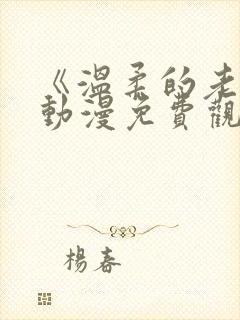 《溫柔的老
動漫免費觀
楊春